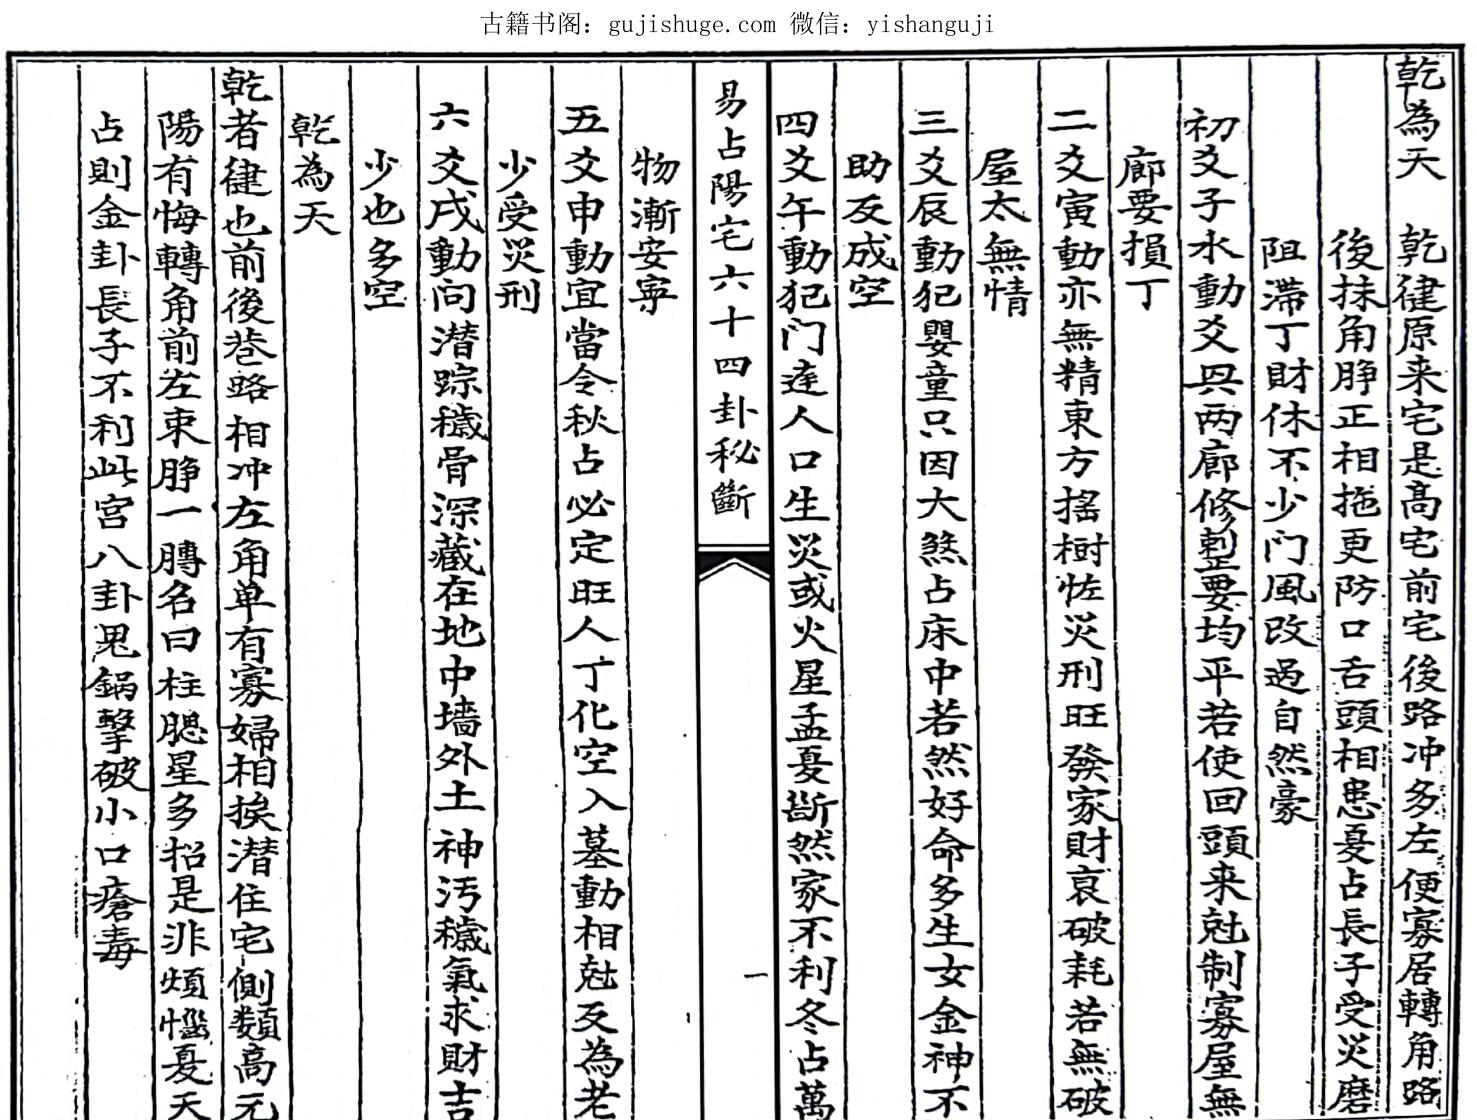 古籍书阁：gujishuge.com 微信：yishanguji
乾為天　乾健原来宅是高宅前宅後路冲多左便寡居轉角路
後抹角脖正相拖更防口舌頭相患憂占長子受災磨
阻滯丁財休不少门風改過自然豪
初爻子水動爻与两廊修整要均平若使回頭来尅制寡屋無
廊要損丁
二爻寅動亦無精東方摇樹恠災刑旺發家財哀破耗若無破
屋太無情
三爻辰動犯嬰童只因大煞占床中若然好命多生女金神不
助反成空
四爻午動犯门逹人口生災或火星孟夏断然家不利冬占萬
物漸安寧
易占陽宅六十四卦秘斷
一
五爻申動宜當令秋占必定旺人丁化空入墓動相尅反為老
少受災刑
六爻戌動问潜踪穢骨深藏在地中墙外土神汚穢氣求財吉
少也多空
乾為天
乾者健也前後巷路相冲左角单有寡婦相挨潜住宅側類高元
陽有悔轉角前左束脖一膞名曰柱腮星多招是非煩惱夏天
占則金卦長子不利此宫八卦鬼鍋擊破小口瘡毒